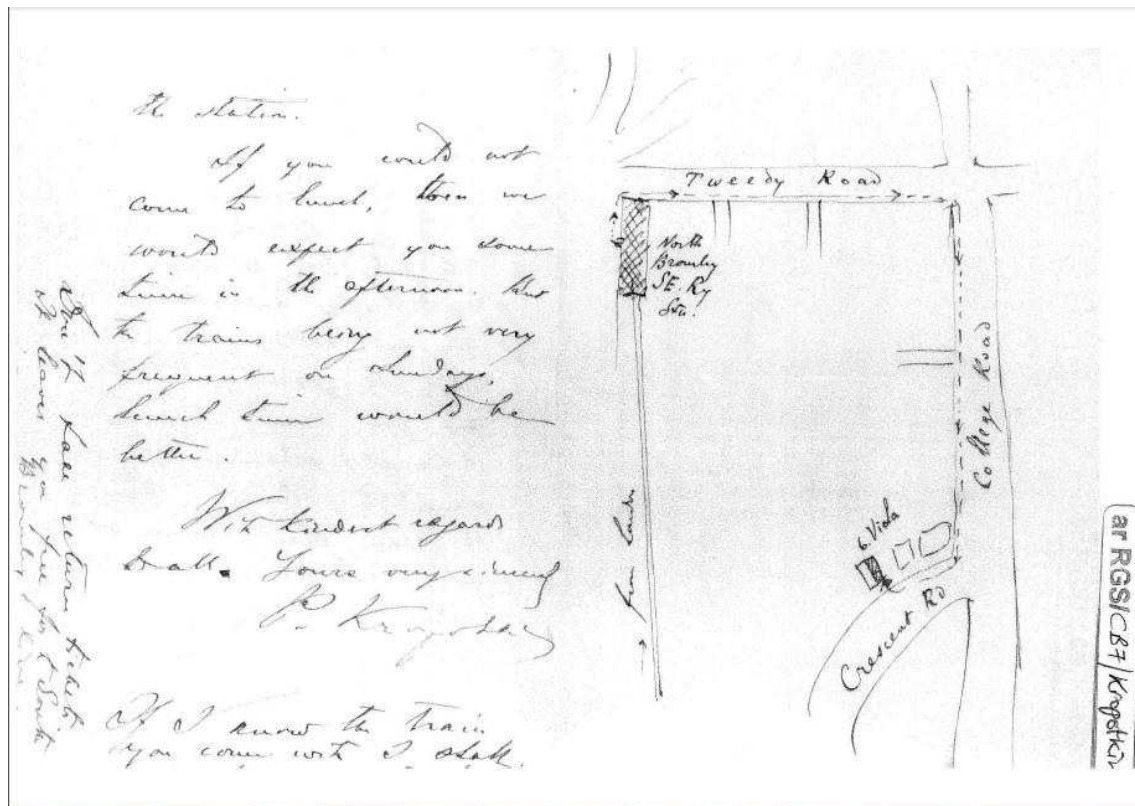 the station.
If you could not
come to lunch, then we
would expect you some
time in the afternoon. But
the trains being not very
frequent on Sundays,
lunch time would be
better.
With kindest regards
to all. Yours very sincerely
P. Kropotkin
If I know the train
you come with I shall
Don't take return tickets
It leaves you free for the South
Bromley line
Tweedy Road
North
Bromley
SE. Ry
Stn.
College Road
6. Viola
Crescent Rd
from London
ar RGS/CB7/Kropotkin